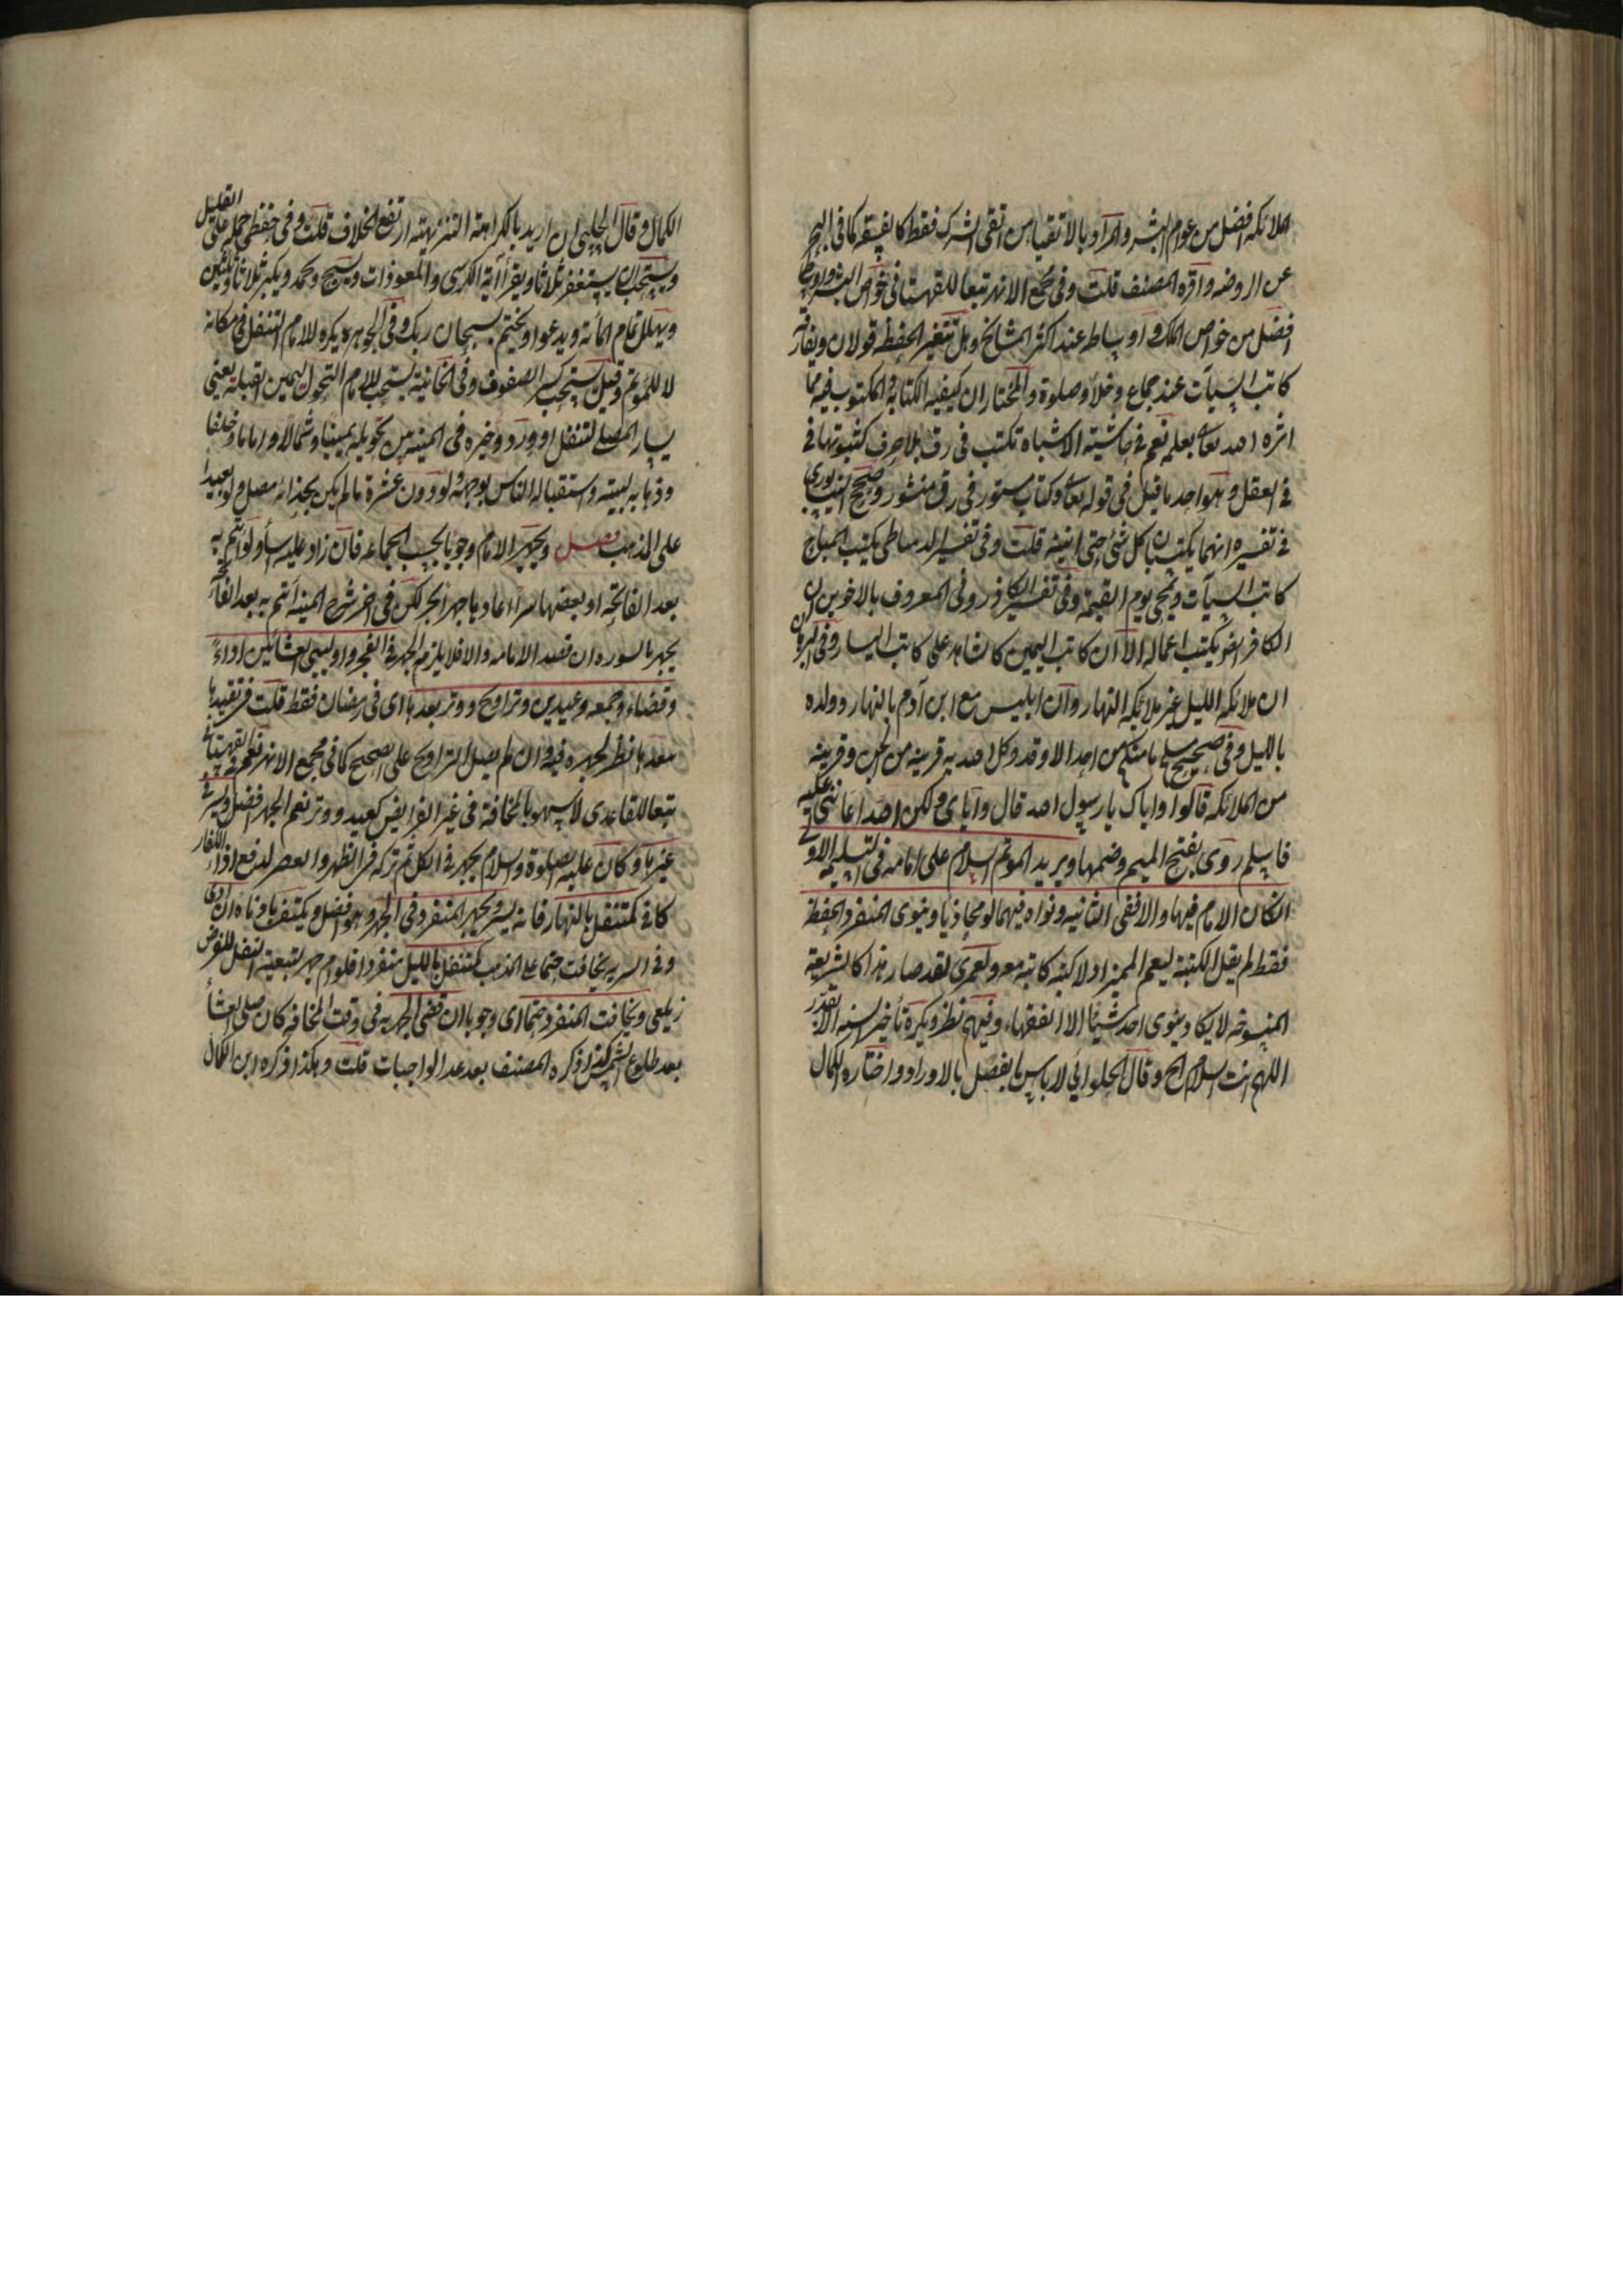 الملائكة افضل من عوام البشر والمراد بالاتقياء من اتقى الشرك فقط كالفسقة كما في البحر
عن الروضة واقره المصنف قلت وفي مجمع الانهر تبعا للقهستاني خواص البشر واوساطه
افضل من خواص الملك واوساطه عند اكثر المشايخ وهل تتغير الحفظة قولان ويفارقه
كاتب السيآت عند جماع وخلاء وصلوة والمختار ان كيفية الكتابة والمكتوب فيه مما
اثره الله تعالى بعلمه نعم في حاشية الاشباه تكتب في رق بلا حرف كثبوتها في
في العقل وهو احد ما قيل في قوله تعالى وكتاب مسطور في رق منشور وصحح النيسابوري
في تفسيره انهما يكتبان كل شئ حتى انينه قلت وفي تفسير الدمياطي يكتب المباح
كاتب السيآت ويمحى يوم القيمة وفي تفسير الكازروني المعروف بالاخوين ان
الكافر ايضا يكتب اعماله الا ان كاتب اليمين كالشاهد على كاتب اليسار وفي البرهان
ان ملائكة الليل غير ملائكة النهار وان ابليس مع ابن آدم بالنهار وولده
بالليل وفي صحيح مسلم ما منكم من احد الا وقد وكل الله به قرينه من الجن وقرينه
من الملائكة قالوا واياك يا رسول الله قال واياي ولكن الله اعانني عليه
فاسلم روى بفتح الميم وضمها ويريد المؤتم السلام على امامه في التسليمة الاولى
ان كان الامام فيها والا ففي الثانية ونواه فيهما لو محاذيا وينوى المنفرد الحفظة
فقط لم يقل الكتبة ليعم المميز اذ لا كتبة كاتبة معه ولعمري لقد صار هذا كالشريعة
المنسوخة لا يكاد ينوى احد شيئا الا الفقهاء وفيهم نظر ويكره تأخير السنة الا بقدر
اللهم انت السلام الخ وقال الحلواني لا باس بالفصل بالاوراد واختاره الكمال
الكمال وقال الحلبي ان اريد بالكراهة التنزيهية ارتفع الخلاف قلت وفي حفظي حمله على القليل
ويستحب ان يستغفر ثلاثا ويقرأ آية الكرسي والمعوذات ويسبح ويحمد ويكبر ثلاثا وثلثين
ويهلل تمام المائة ويدعو او يختم بسبحان ربك وفي الجوهرة يكره للامام التنفل في مكانه
لا للمؤتم وقيل يستحب كسر الصفوف وفي الخانية يستحب للامام التحول ليمين القبلة يعني
يسار المصلي لتنفل او ورد وخيره في المنية بين تحويله يمينا وشمالا واماما وخلفا
وذهابه لبيته واستقباله الناس بوجهه لو دون عشرة ما لم يكن بحذائه مصل ولو بعيدا
على المذهب فصل ويجهر الامام وجوبا بحسب الجماعة فان زاد عليه اسأ ولو ائتم به
بعد الفاتحة او بعضها سرا اعادها جهرا بحر لكن في اخر شرح المنية ائتم به بعد الفاتحة
يجهر بالسورة ان قصد الامامة والا فلا يلزمه الجهر في الفجر واوليى العشائين اداء
وقضاء وجمعة وعيدين وتراويح ووتر بعدها اى في رمضان فقط قلت في تقييده
ببعدها نظر لجهره فيه وان لم يصل التراويح على الصحيح كما في مجمع الانهر نعم في القهستاني
تبعا للقاعدي لا سهو بالمخافتة في غير الفرايض كعيد ووتر نعم الجهر افضل ويسر في
غيرها وكان عليه الصلوة والسلام يجهر في الكل ثم تركه في الظهر والعصر لدفع اذاء الكفار
كافي كمتنفل بالنهار فانه يسر ويخير المنفرد في الجهر وهو افضل ويكتفى بادناه ان ادى
وفي السرية يخافت حتما على المذهب كمتنفل بالليل منفردا فلو ام جهر لتبعية النفل للفرض
زيلعى ويخافت المنفرد حتما اى وجوبا ان قضى الجهرية في وقت المخافتة كان صلى العشأ
بعد طلوع الشمس كذا ذكره المصنف بعد عد الواجبات قلت وهكذا ذكره ابن الكمال